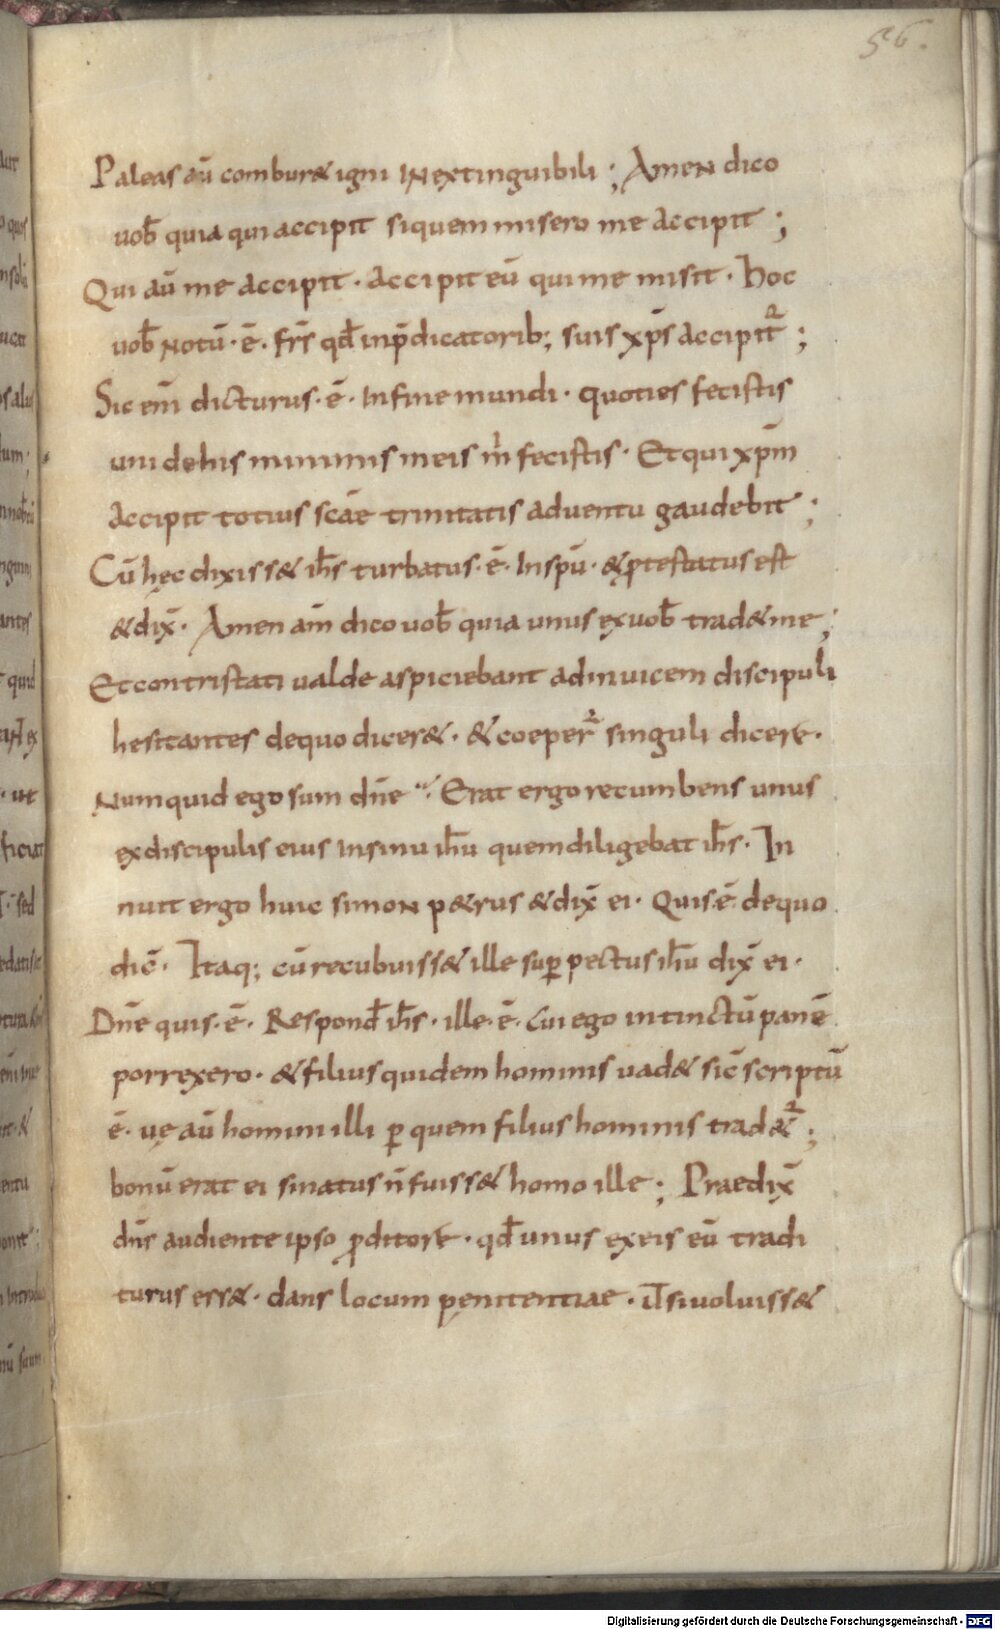 56.
Paleas aū combur& igni inextinguibili ; Amen dico
uob̄ quia qui accipit siquem misero me accipit ;
Qui aū me accipit · accipit eū qui me misit · Hoc
uob̄ notū · ē · frs̄ qđ inp̄dicatorib; suis xp̄s accipit᷑ ;
Sic eni̅ dicturus · ē · In fine mundi · quoties fecistis
uni de his minimis meis m̄ fecistis · Et qui xp̄m
accipit totius scāe trinitatis aduentu gaudebit ;
Cū hęc dixiss& ih̄s turbatus · ē · In sp̄u · & ꝓtestatus est
& dix̄ · Amen am̄ dico uob̄ quia unus ex uob̄ trad& me ;
Et contristati ualde aspiciebant adinuicem discipuli
hesitantes de quo dicer& · & coeper᷑ singuli dicere ·
Numquid ego sum dn̄e · Erat ergo recumbens unus
ex discipulis eius in sinu ih̄u quem diligebat ih̄s · In
nuit ergo huic simon p&rus & dix̄ ei · Quis ē de quo
dic̄ · Itaq; cū recubuiss& ille suꝑ pectus ih̄u dix̄ ei ·
Dn̄e quis · ē · Respond̄ ih̄s · ille · ē · Cui ego intinctū panē
porrexero · & filius quidem hominis uad& sic̄ scriptū
ē · uę aū homini illi ꝑ quem filius hominis trad&᷑ ;
bonū erat ei si natus n̄ fuiss& homo ille ; Praedix̄
dn̄s audiente ipso ꝓditore · qđ unus ex eis eū tradi
turus ess& · dans locum penitentiae · ut̄ si uoluiss&
Digitalisierung gefördert durch die Deutsche Forschungsgemeinschaft - DFG